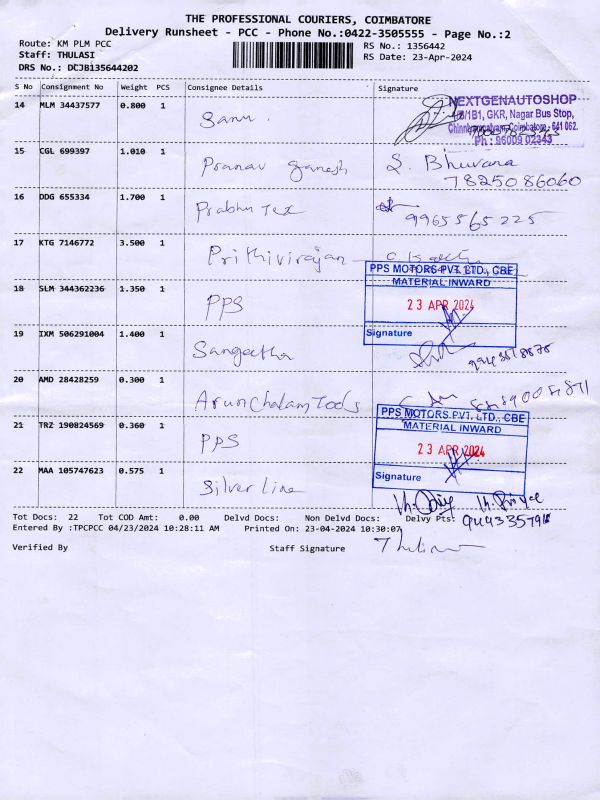 THE PROFESSIONAL COURIERS, COIMBATORE
Delivery Runsheet - PCC - Phone No.:0422-3505555 - Page No.:2
Route: KM PLM PCC
RS No.: 1356442
Staff: THULASI
RS Date: 23-Apr-2024
DRS No.: DCJB135644202
S No Consignment No Weight PCS Consignee Details Signature
14 MLM 34437577 0.800 1 Sanu.
NEXTGENAUTOSHOP
GKR, Nagar Bus Stop,
Coimbatore - 641 062.
Ph : 96009 02343
15 CGL 699397 1.010 1 Pranav Ganesh S. Bhuvana
7825086060
16 DDG 655334 1.700 1 Prabhu Tex 9965565225
17 KTG 7146772 3.500 1 Prithivirajan
PPS MOTORS PVT. LTD., CBE
MATERIAL INWARD
18 SLM 344362236 1.350 1 PPS
23 APR 2024
Signature
19 IXM 506291004 1.400 1 Sangeetha
20 AMD 28428259 0.300 1 Arunchalam Tods
PPS MOTORS PVT. LTD., CBE
MATERIAL INWARD
21 TRZ 190824569 0.360 1 PPS
23 APR 2024
Signature
22 MAA 105747623 0.575 1 Silver Line
Tot Docs: 22 Tot COD Amt: 0.00 Delvd Docs: Non Delvd Docs: Delvy Pts:
Entered By :TPCPCC 04/23/2024 10:28:11 AM Printed On: 23-04-2024 10:30:07
Verified By Staff Signature